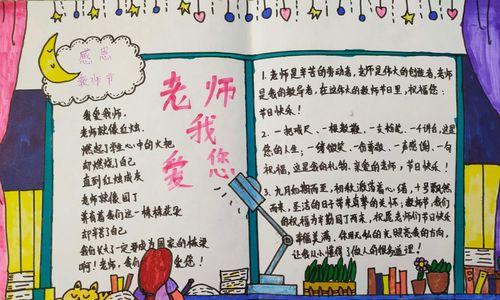 感恩
教师节
老师
我
爱您
我爱我师，
老师就像红烛，
燃起了学生心中的火把
却燃烧了自己
直到红烛成灰
老师就像园丁
养育着我们这一棵棵花朵
却辛苦了自己
我们长大一定要成为国家的栋梁
啊！老师，我们 爱您！
1. 老师是辛苦的劳动者，老师是伟大的创造者，老师
是我的教导者，在这伟大的教师节日里，祝福您：
节日快乐！
2. 一把戒尺、一根教鞭、一支粉笔、一个讲台，这是
您的人生；一缕微笑、一份尊敬、一声感谢、一句
祝福，这是您的礼物。亲爱的老师，节日快乐！
3. 九月如期而至，初秋激荡着心绪，十号飘然
而来，圣洁的日子带来真挚的关怀；教师节，我们
的祝福为辛勤园丁而来，祝愿老师们节日快乐
幸福美满。你用无私的光照亮我的方向，
让我从小懂得了做人的很多道理！